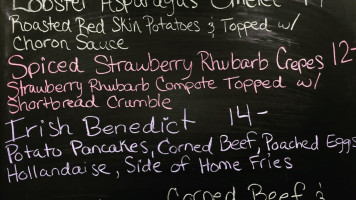 Lobster Asparagus Omelet
Roasted Red Skin Potatoes & Topped w/
Choron Sauce
Spiced Strawberry Rhubarb Crepes 12
Strawberry Rhubarb Compote Topped w/
Shortbread Crumble
Irish Benedict 14-
Potato Pancakes, Corned Beef, Poached Eggs
Hollandaise, Side of Home Fries
Corned Beef &